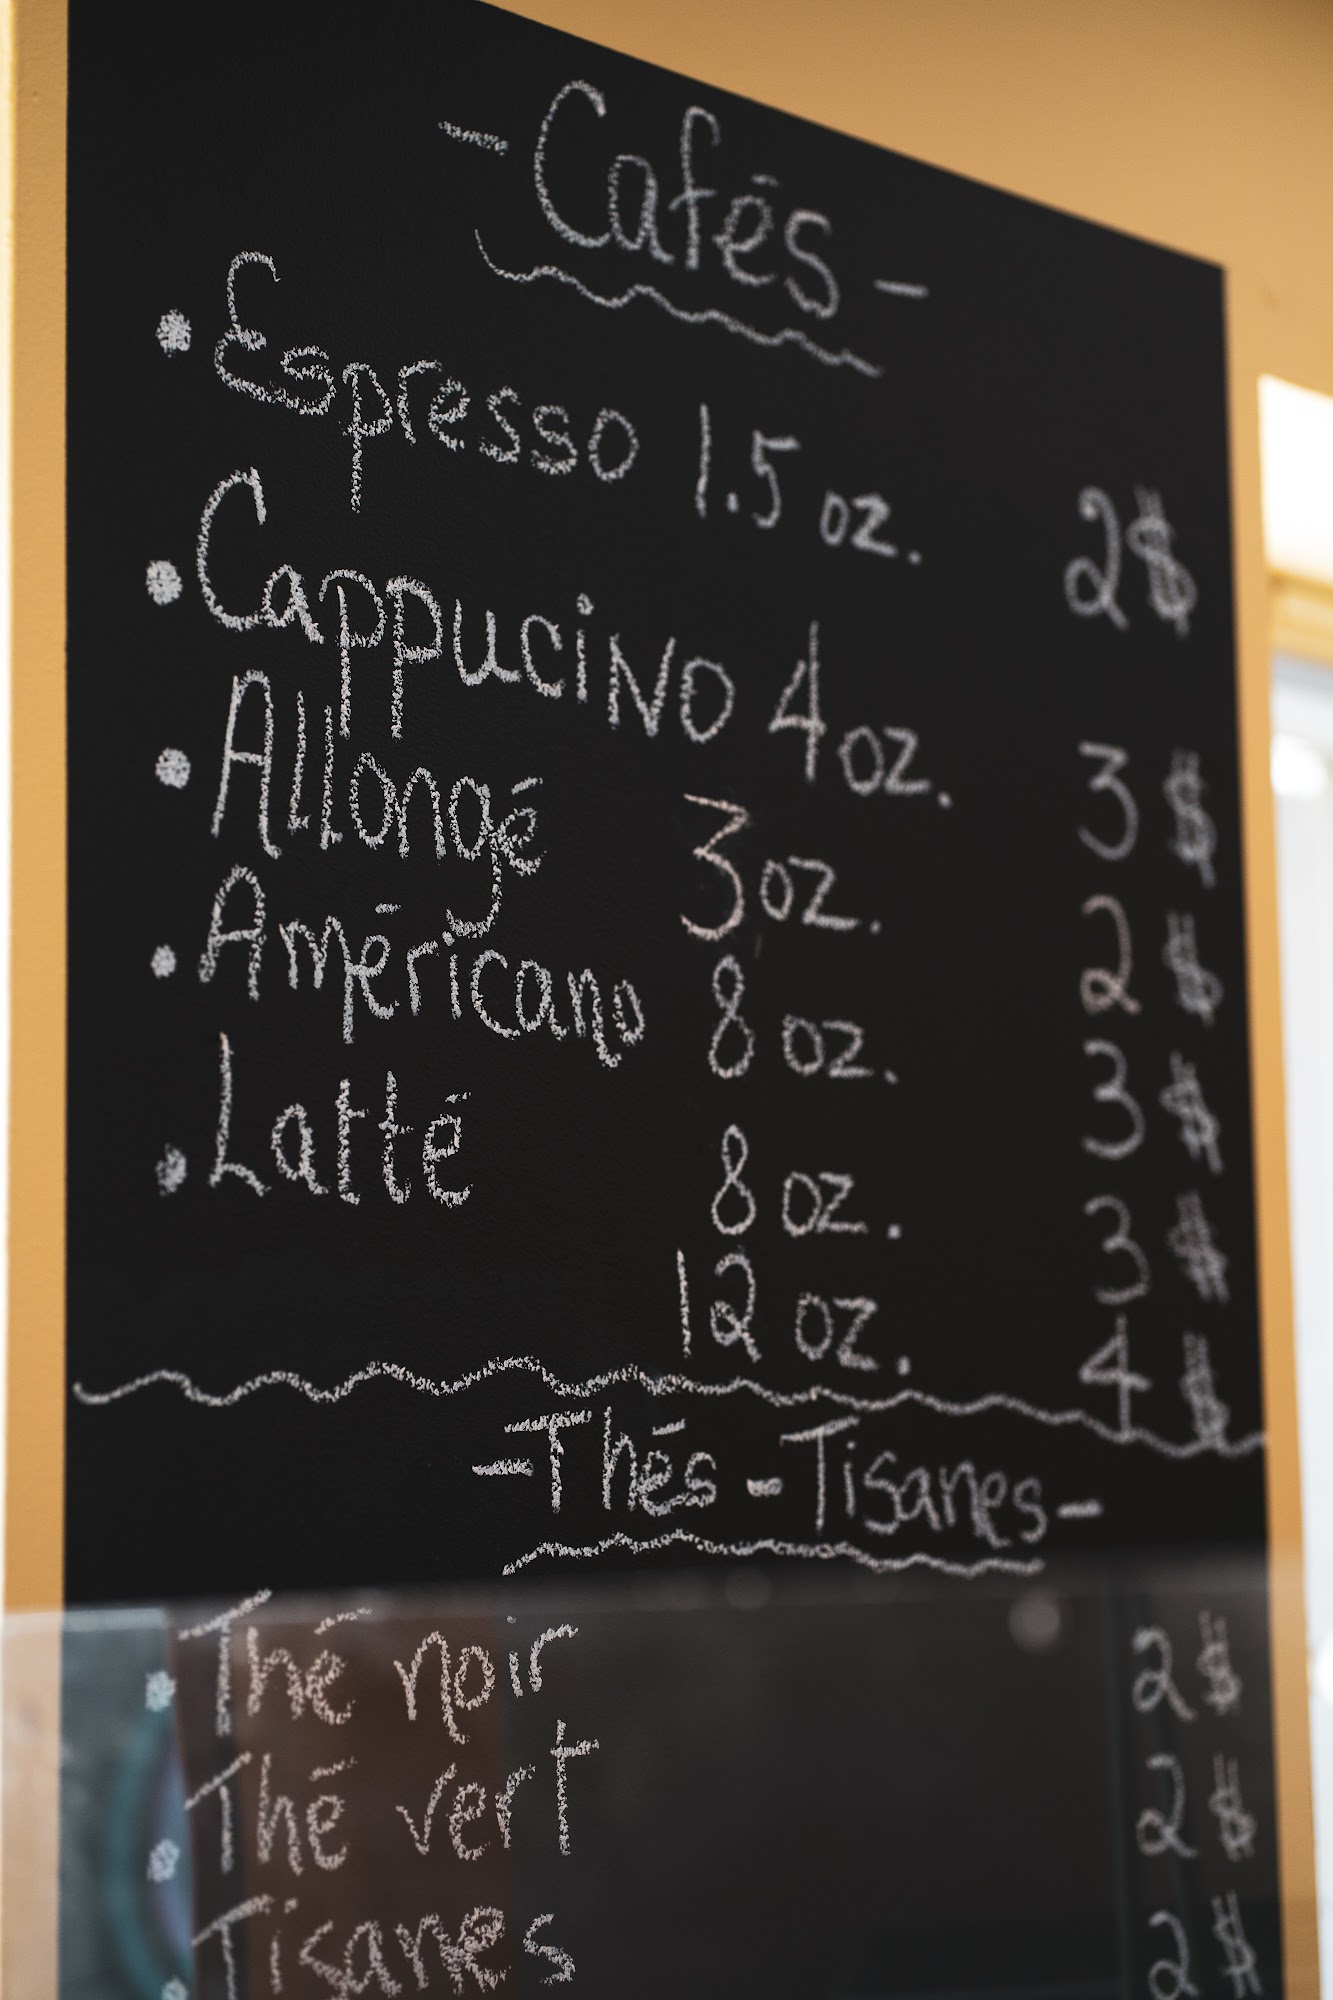 - Cafés -
• Espresso 1.5 oz. 2$
• Cappucino 4 oz. 3$
• Allongé 3 oz. 2$
• Américano 8 oz. 3$
• Latté 8 oz. 3$
12 oz. 4$
- Thés - Tisanes -
• Thé noir 2$
• Thé vert 2$
• Tisanes 2$